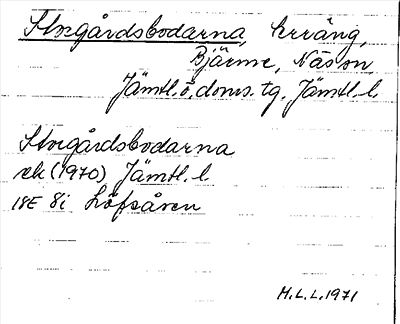 Storgårdsbodarna, terräng,
Bjärme, Näs sn,
Jämtl. ö. doms. tg. Jämtl. l.
Storgårdsbodarna
ek (1970) Jämtl. l.
18E 8i Löfsåsen
M.L.L. 1971